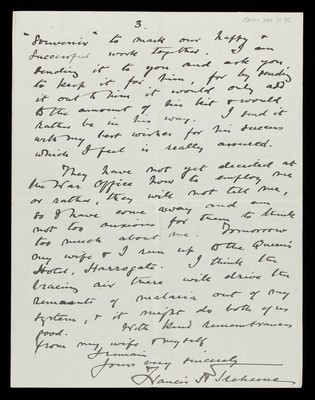 3.
"Souvenir" to mark our happy &
successful work together. I am
sending it to you and ask you
to keep it for him, for by sending
it out to him it would only add
to the amount of his kit & would
rather be in his way. I send it
with my best wishes for his success
which I feel is really assured.
They have not yet decided at
the War Office how to employ me
or rather, they will not tell me,
so I have come away and am
not too anxious for them to think
too much about me. Tomorrow
my wife & I run up to the Queen's
Hotel, Harrogate. I think the
bracing air there will drive the
remnants of malaria out of my
system, & it might do both of us
good. With kind remembrances
from my wife & myself
I remain
Yours very sincerely
Francis A